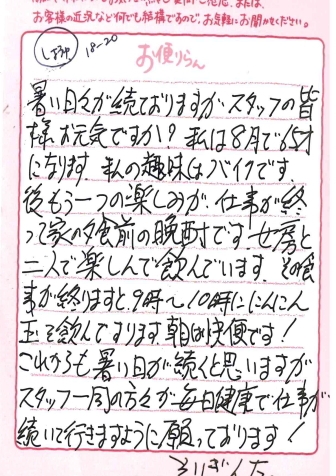 お客様の近況など何でも結構ですので、お気軽にお聞かせください。
18-20
お便りらん
暑い日々が続ておりますがスタッフの皆
様お元気ですか？私は8月で65才
になります。私の趣味はバイクです。
後もう一つの楽しみが、仕事が終
って家の夕食前の晩酌です。女房と
二人で楽しんで飲んでいます。その食
事が終りますと、9時〜10時ににんにん
玉を飲んでおります。朝は快便です！
これからも暑い日が続くと思いますが
スタッフ一同の方々が毎日健康で仕事が
続いて行きますように願っております！